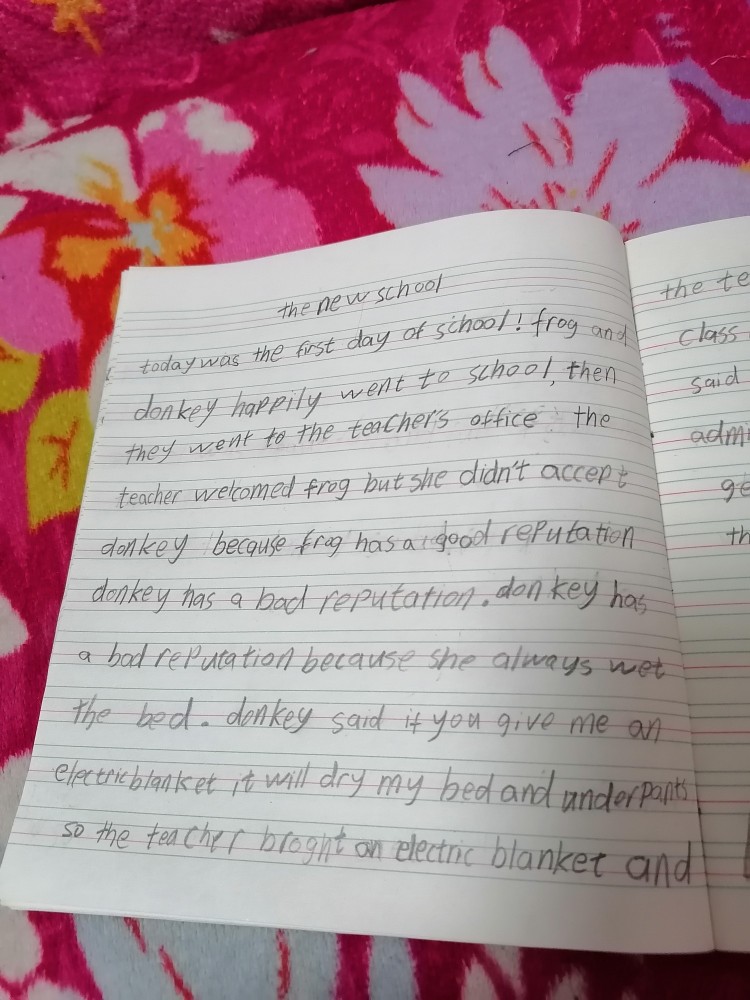 the new school
today was the first day of school! frog and
donkey happily went to school, then
they went to the teacher's office. the
teacher welcomed frog but she didn't accept
donkey because frog has a good reputation
donkey has a bad reputation. donkey has
a bad reputation because she always wet
the bed. donkey said if you give me an
electricblanket it will dry my bed and underpants
so the teacher broght an electric blanket and
the te
class
said
admi
ge
th